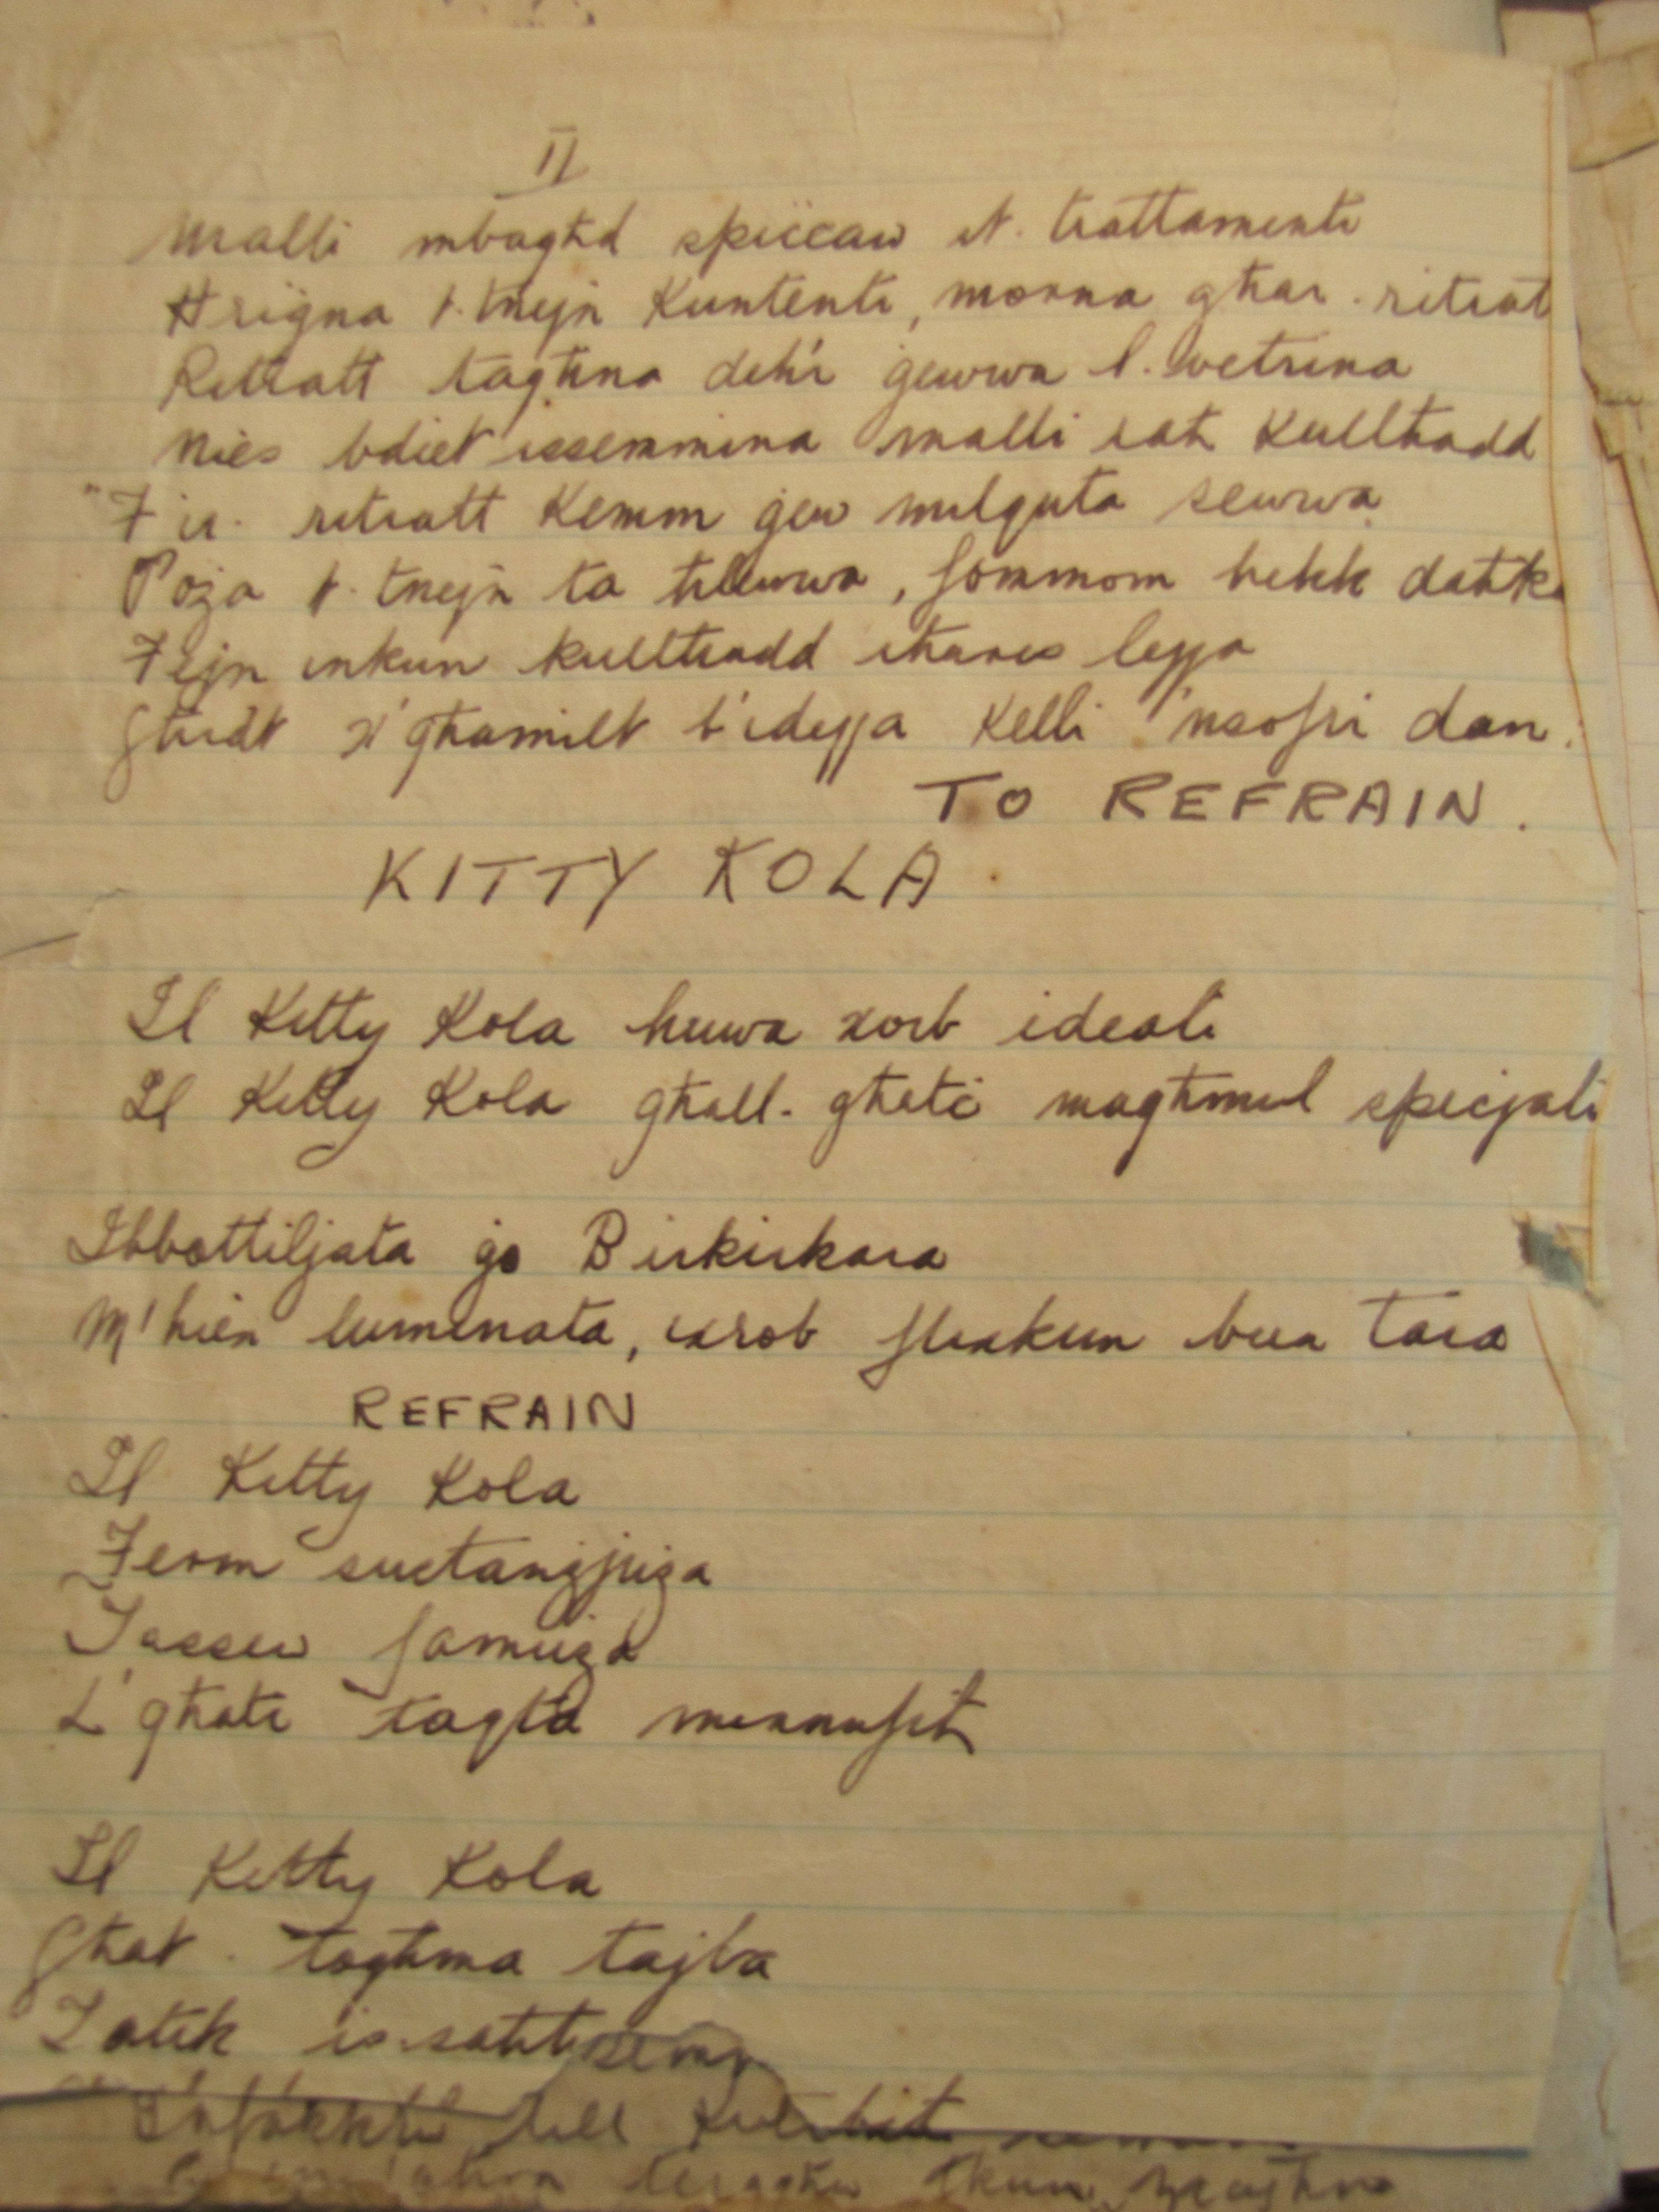 II
Malli mbagħd spiċċaw it. trattamenti
Ħriġna t. tnejn kuntenti, morna għar. ritratt
Ritratt tagħna deħr ġewwa l. vetrina
Nies bdiet issemmina malli rah kulħadd
F'ir. ritratt kemm ġew milquta sewwa
Poża t. tnejn ta ħlewwa, f'ommom hekk daħka
Fejn inkun kulħadd iħares lejja
Għidt x'għamilt b'idejja kelli nsofri dan.
TO REFRAIN.
KITTY KOLA
Il Kitty Kola huwa xorb ideali
Il Kitty Kola għall. għeti magħmul speċjali
Ibbottiljata ġo Birkirkara
M'hiex luminata, ixrob flixkun biex tara
REFRAIN
Il Kitty Kola
Ferm sustanzjuża
Tassew famuża
L'għati tagħa minnufih
Il Kitty Kola
Għat. togħma tajba
Tatik is. saħħa
till